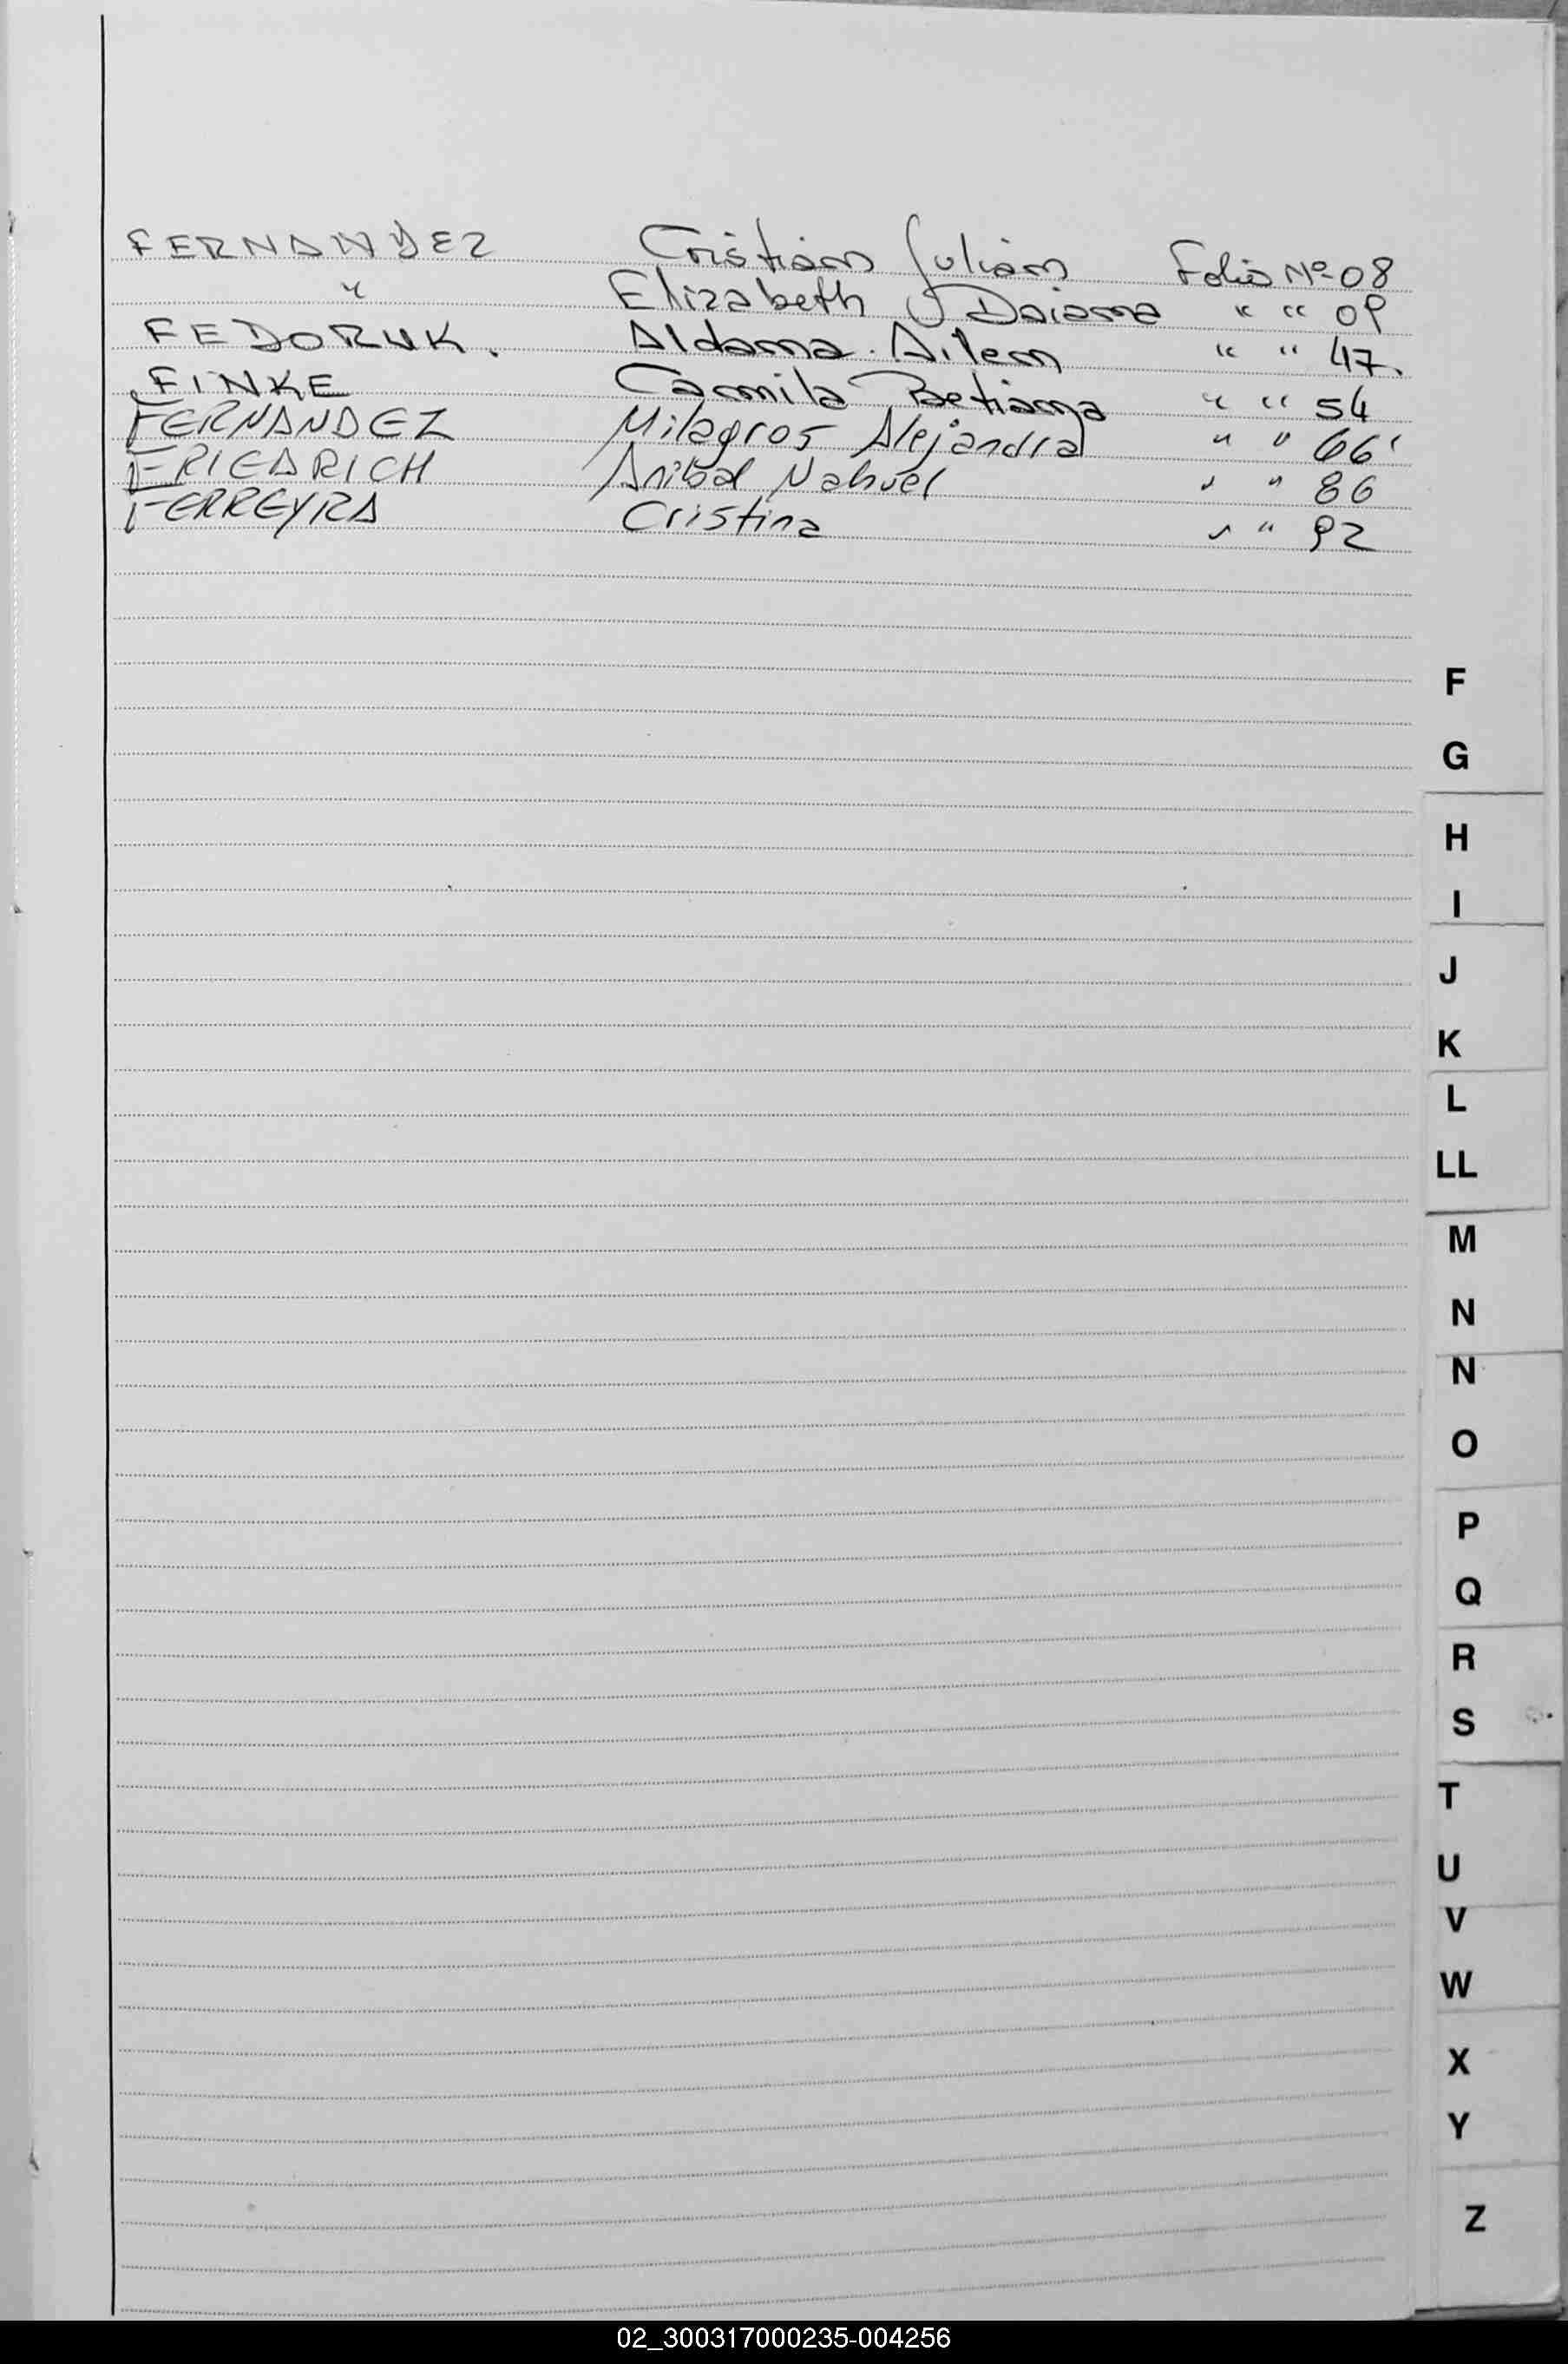 FERNANDEZ Cristian Julian Folio Nº 08
" Elizabeth Daiana " " 09
FEDORUK. Aldana Ailen " " 47.
FINKE Camila Betiana " " 54
FERNANDEZ Milagros Alejandra " " 66
FRIEDRICH Anibal Nahuel " " 86
FERREYRA Cristina " " 92
F
G
H
I
J
K
L
LL
M
N
N
O
P
Q
R
S
T
U
V
W
X
Y
Z
02_300317000235-004256